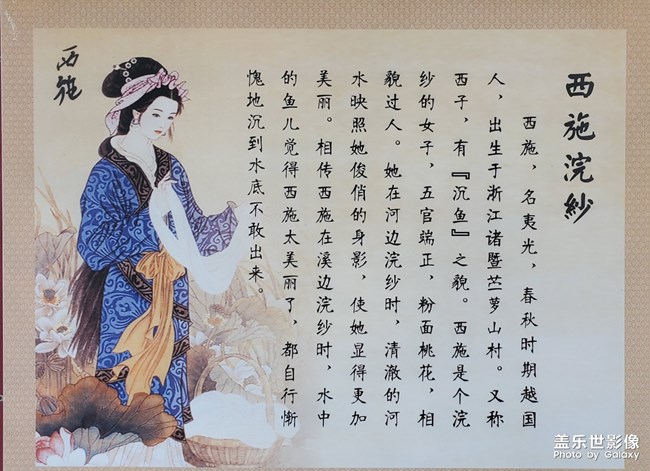 西施浣紗
西施，名夷光，春秋时期越国
人，出生于浙江诸暨苎萝山村。又称
西子，有『沉鱼』之貌。西施是个浣
纱的女子，五官端正，粉面桃花，相
貌过人。她在河边浣纱时，清澈的河
水映照她俊俏的身影，使她显得更加
美丽。相传西施在溪边浣纱时，水中
的鱼儿觉得西施太美丽了，都自行惭
愧地沉到水底不敢出来。
西施
盖乐世影像
Photo by Galaxy